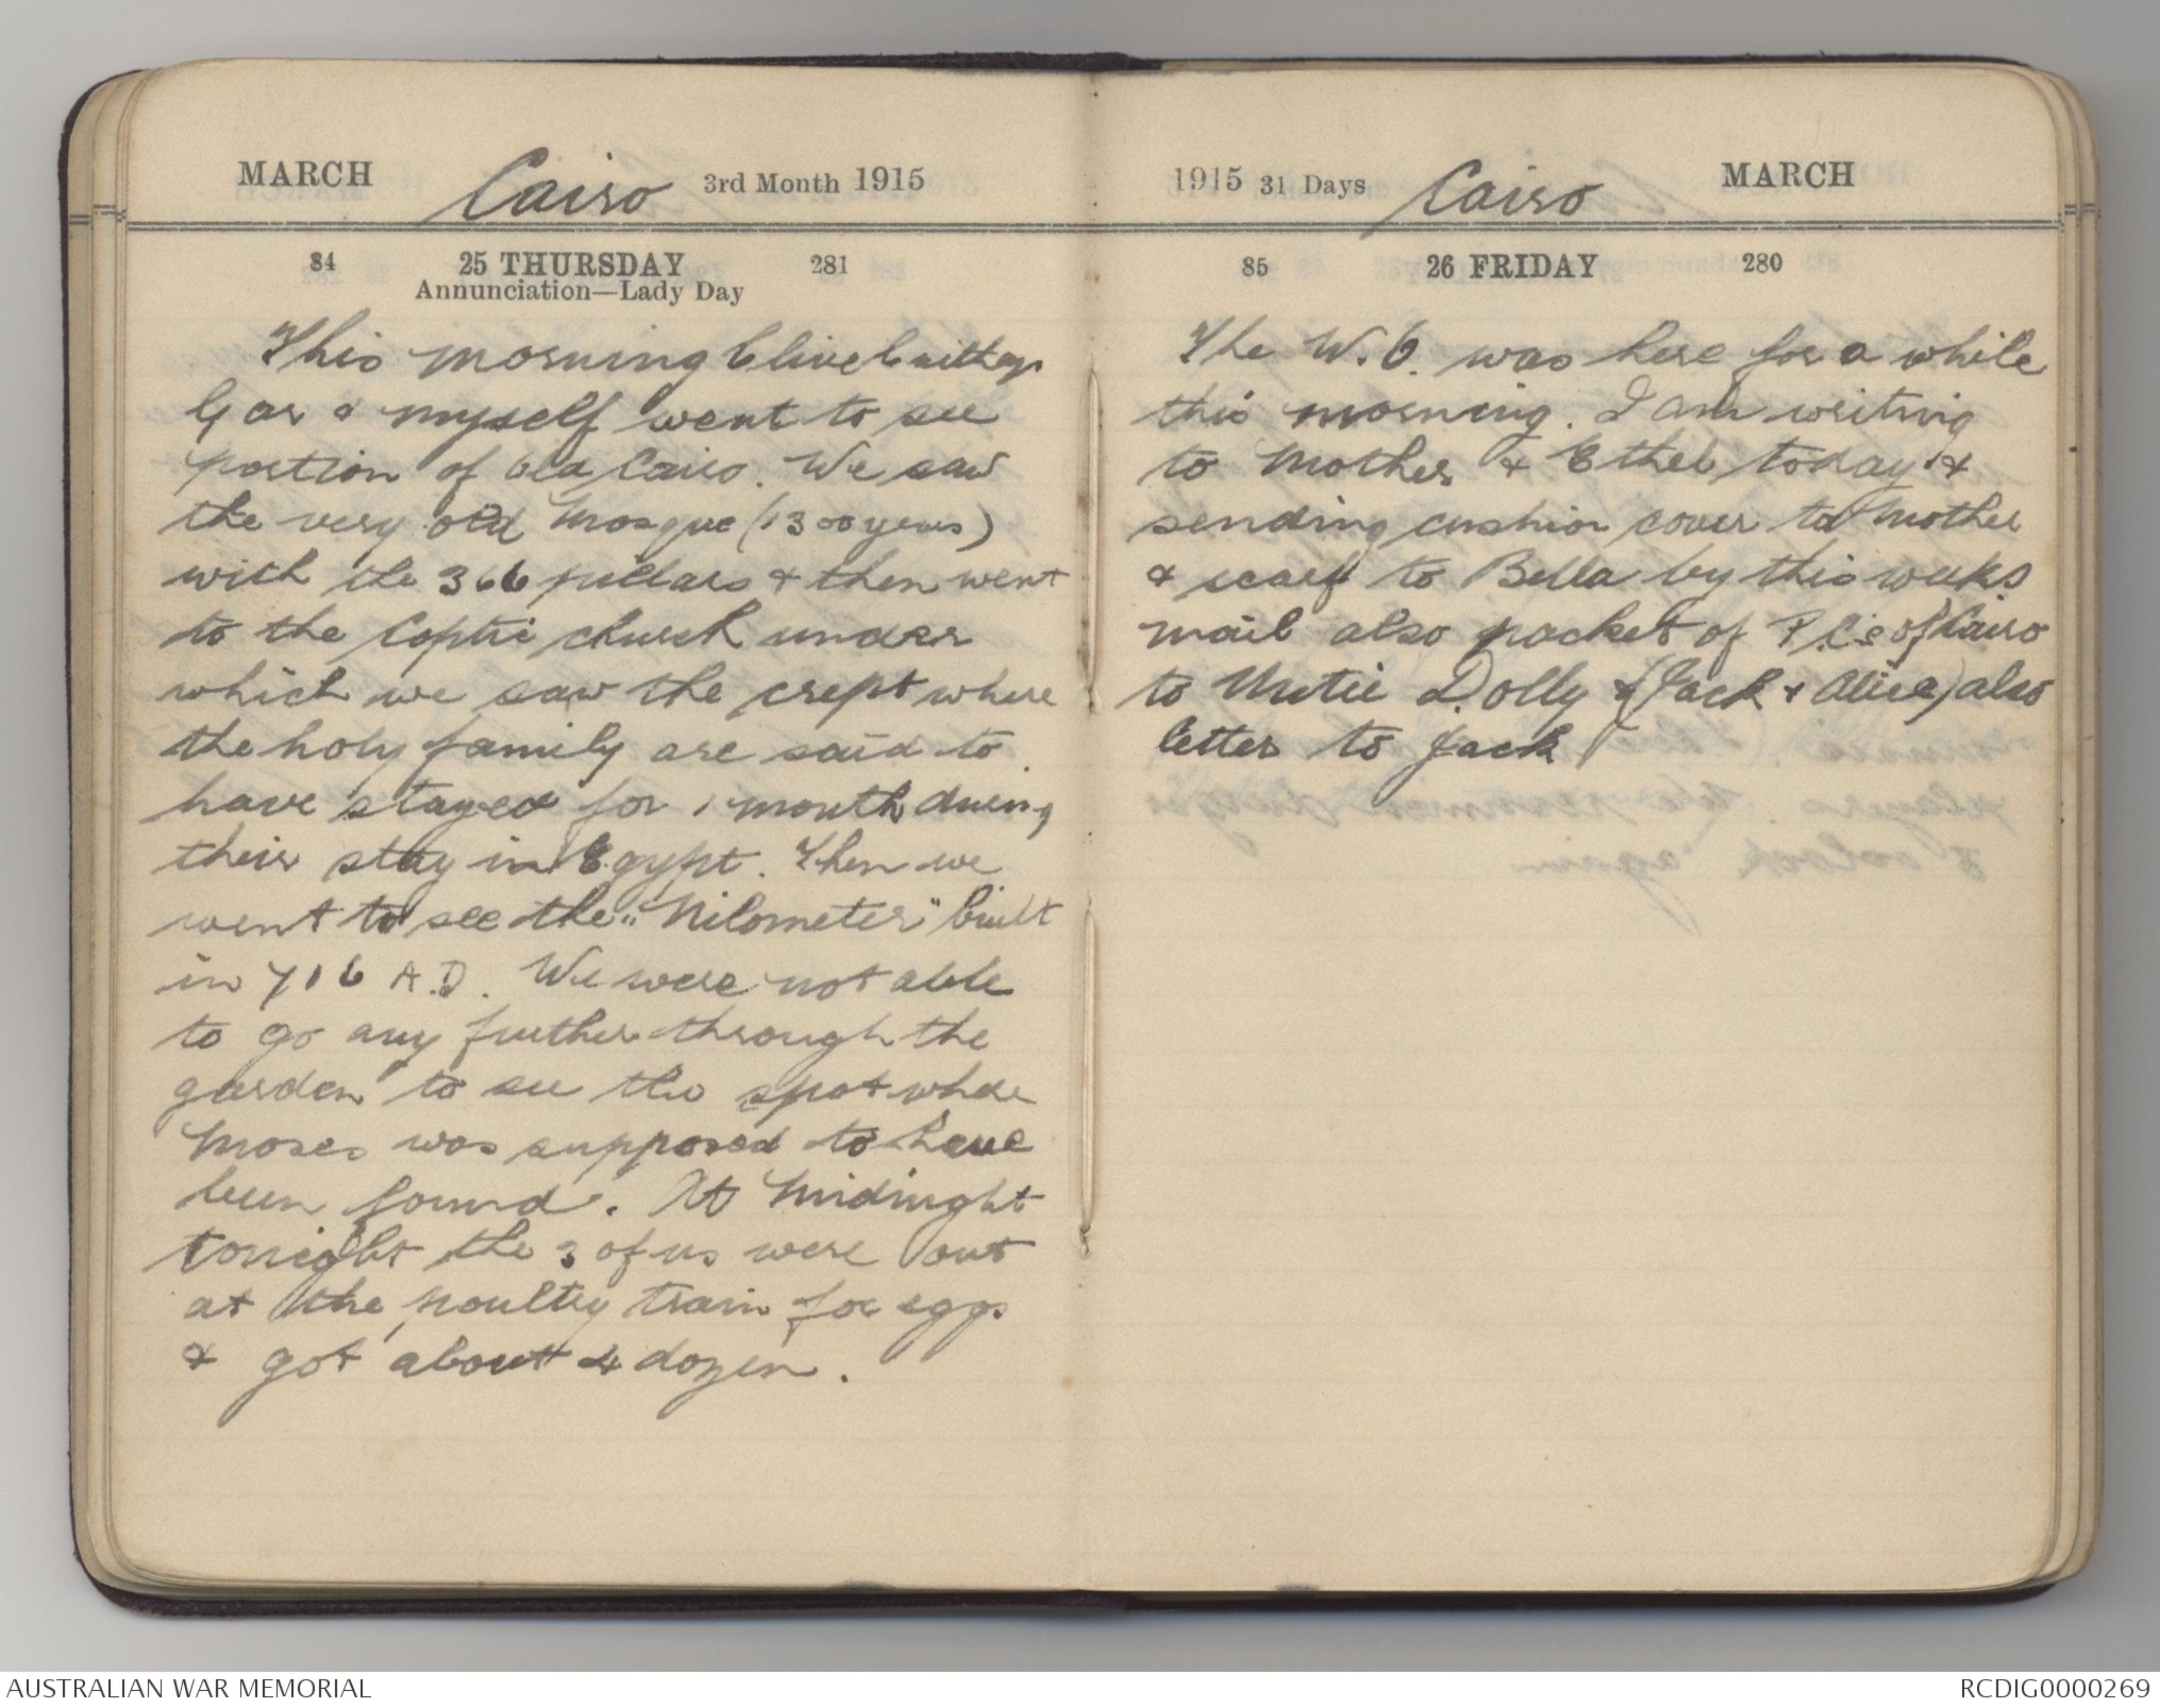 MARCH Cairo 3rd Month 1915
84 25 THURSDAY 281
Annunciation—Lady Day
This morning Clive
Gar & myself went to see
portion of Old Cairo. We saw
the very old Mosque (1300 years)
with the 366 pillars & then went
to the Coptic church under
which we saw the crept where
the holy family are said to
have stayed for 1 month during
their stay in Egypt. Then we
went to see the "Nilometer" built
in 716 A.D. We were not able
to go any further through the
garden to see the spot where
Moses was supposed to have
been found. At Midinght
tonight the 3 of us were out
at the poultry train for eggs
& got about 4 dozen.
1915 31 Days Cairo MARCH
85 26 FRIDAY 280
The W.O. was here for a while
this morning. I am writing
to Mother & Ethel today &
sending cushion cover to Mother
& scarf to Bella by this weeks
mail also packet of P.C's of Cairo
to Dolly & (Jack & Alice) also
letter to Jack
AUSTRALIAN WAR MEMORIAL
RCDIG0000269